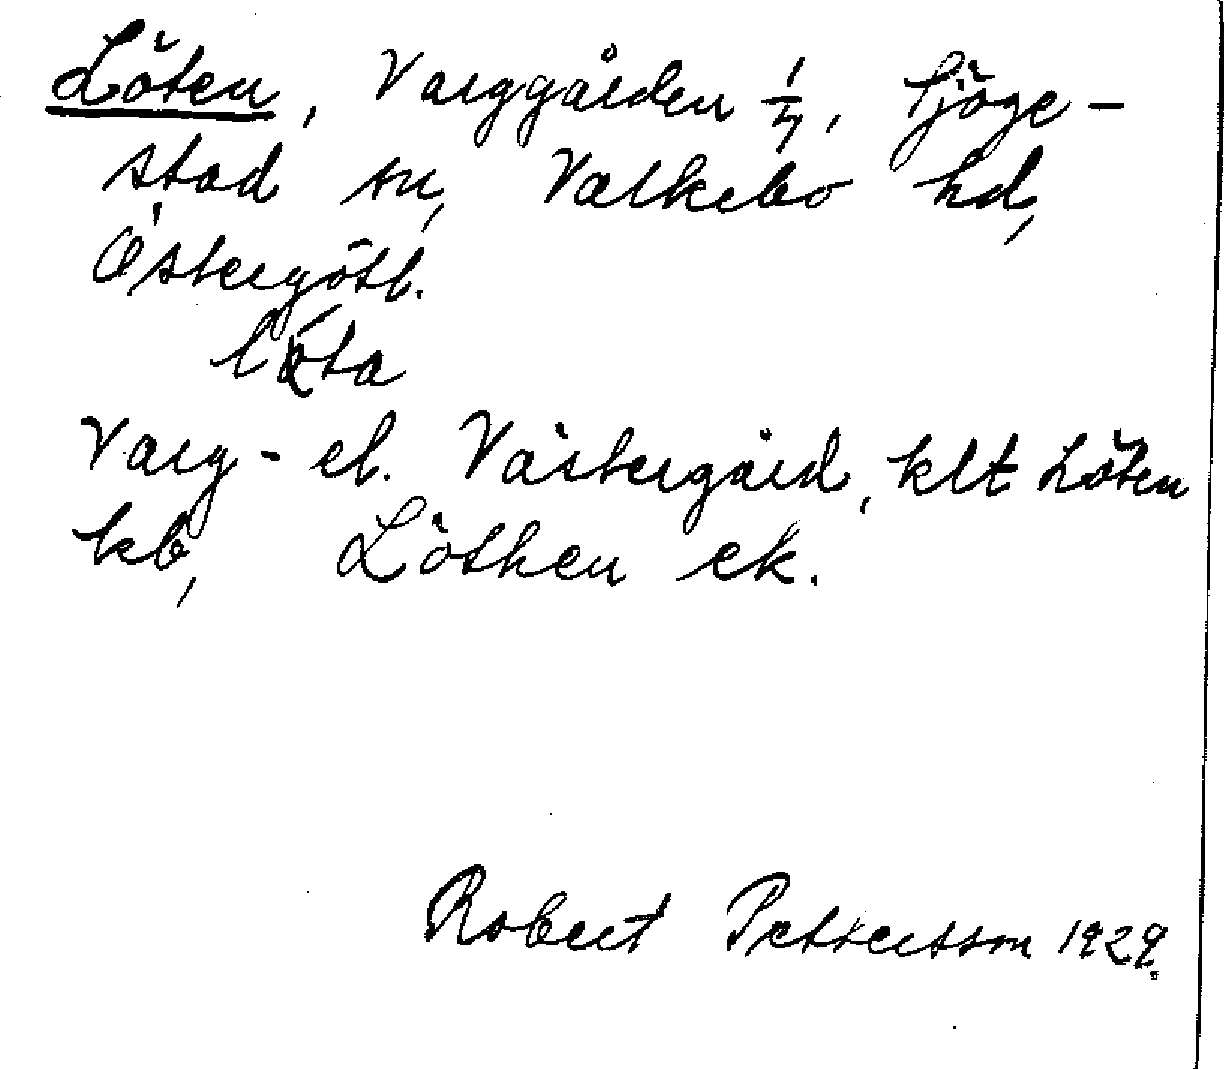 Löten, Varggården 1/4, Sjöge-
stad sn, Valkebo hd,
Östergötl.
Varg- el. Västergård, klt Löten
kb, Löthen ek.
Robert Pettersson 1929.